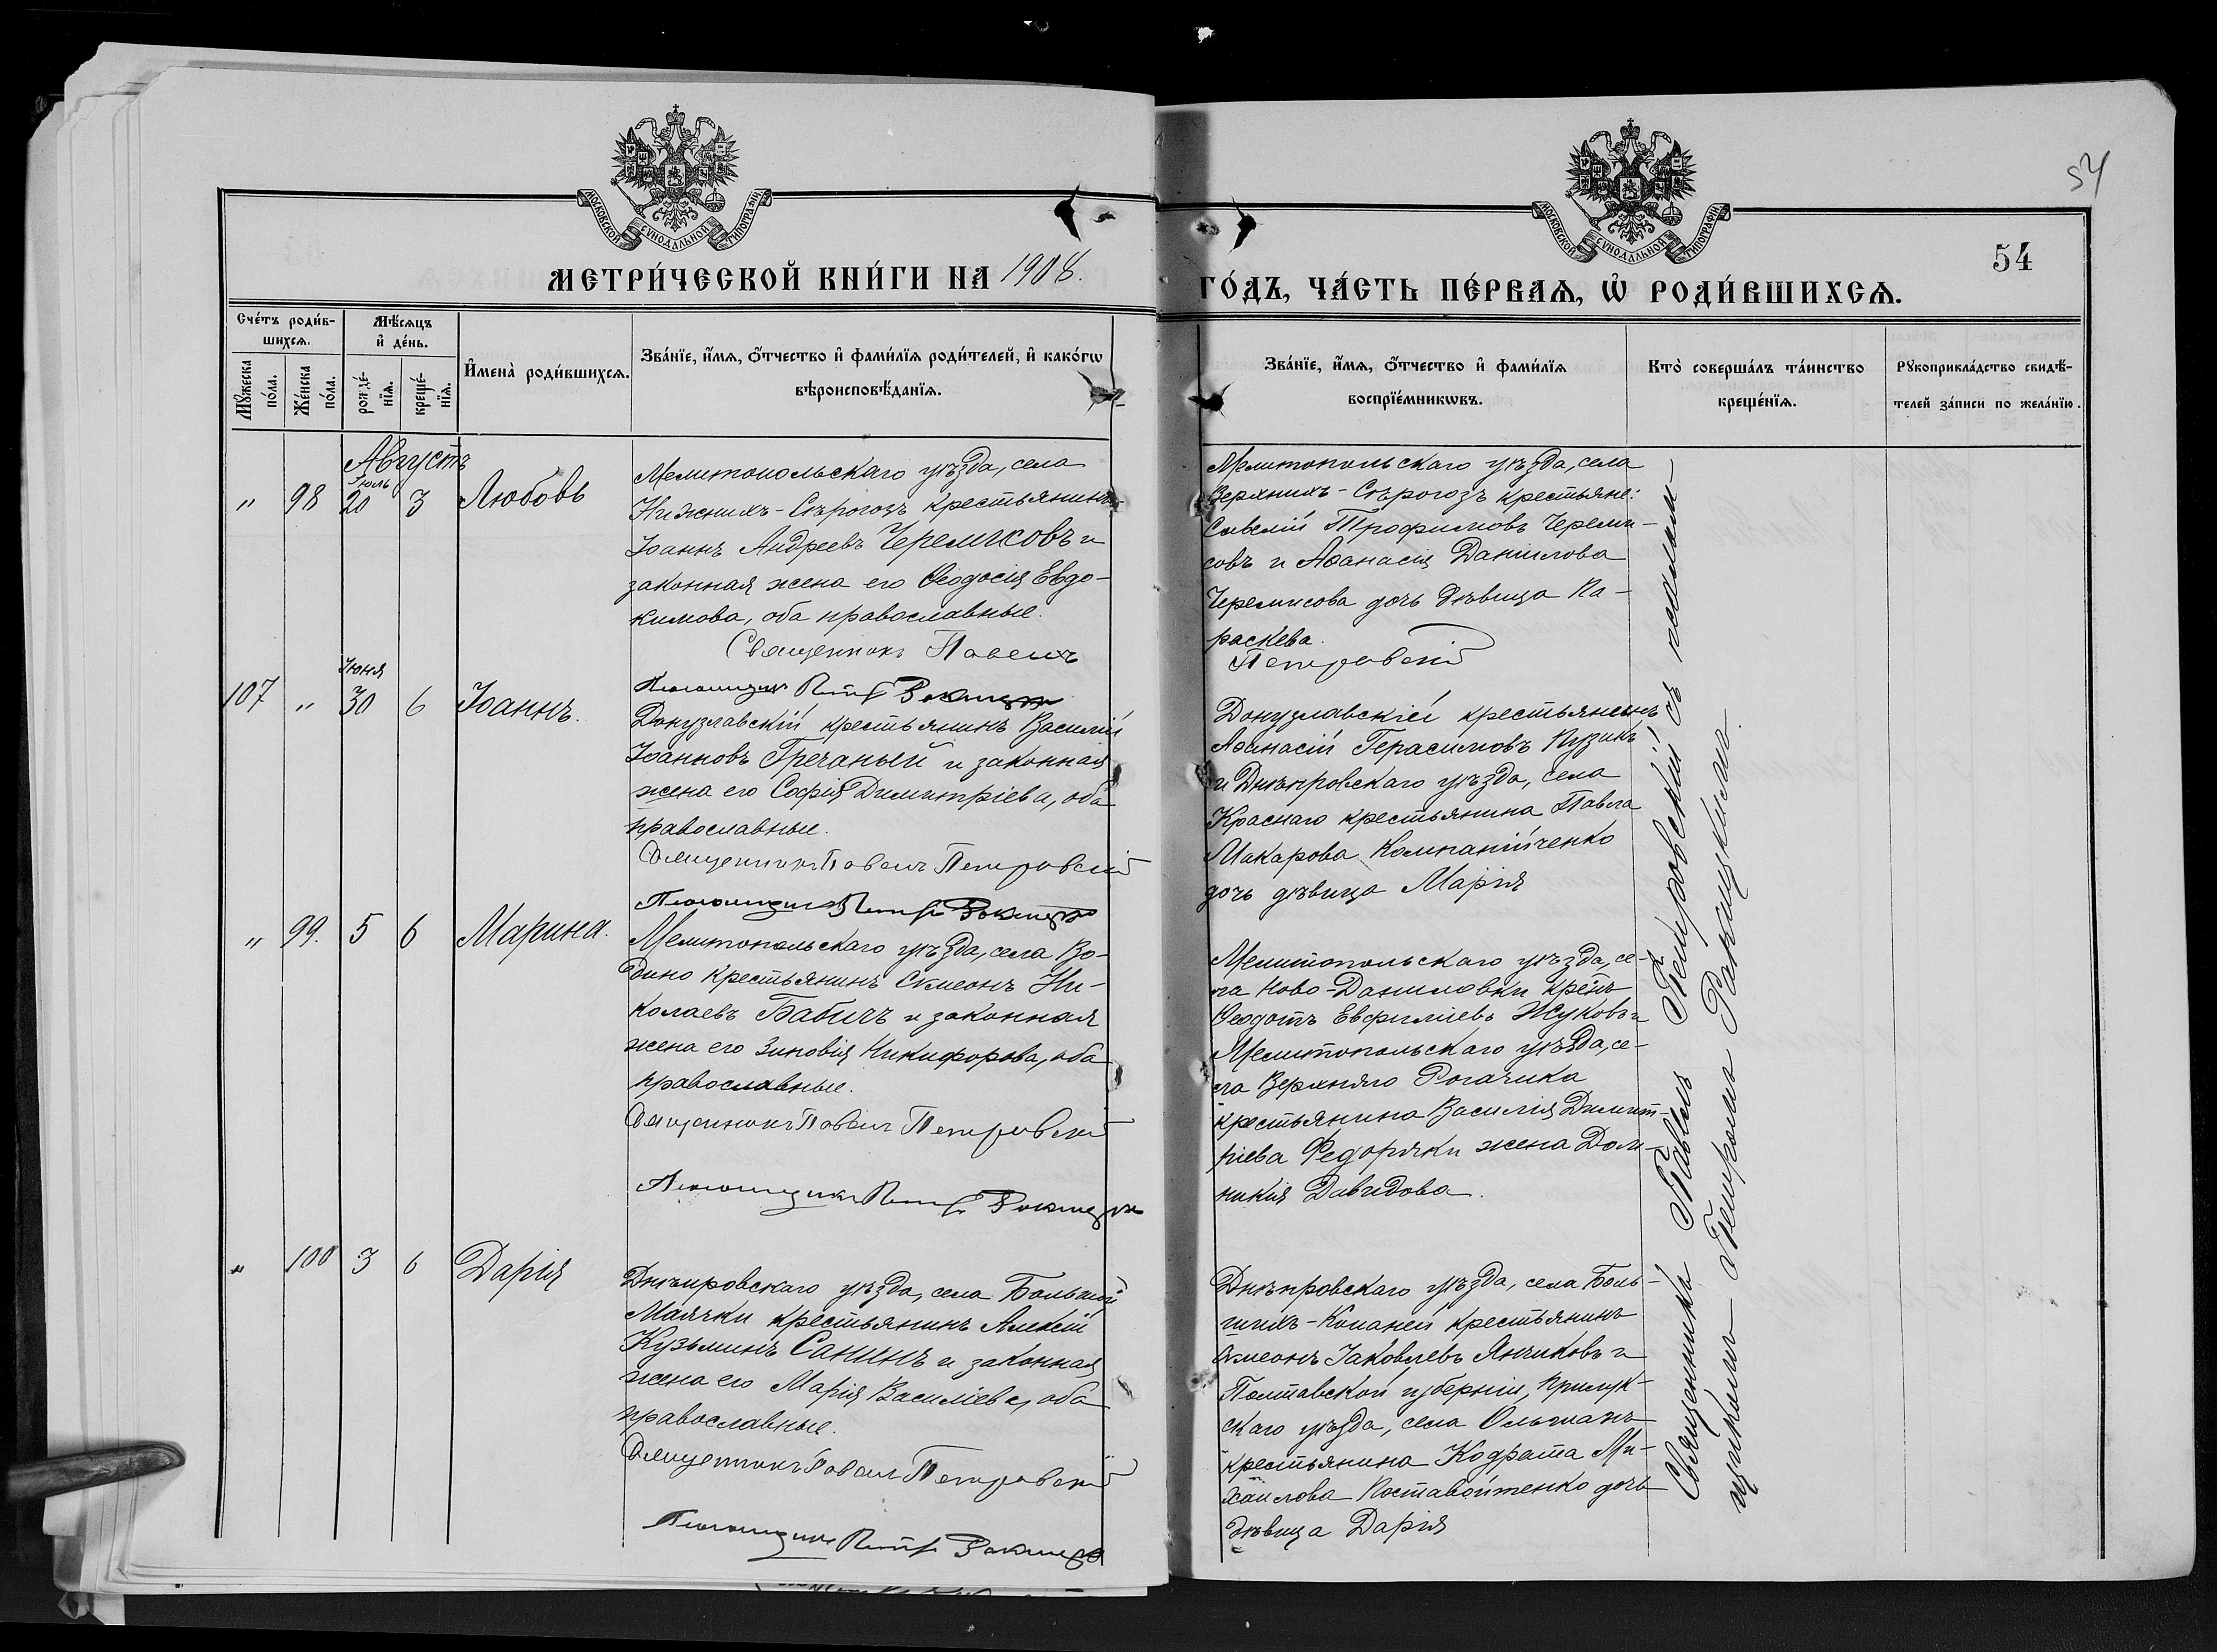 54
МОСКОВСКОЙ СѴНОДАЛЬНОЙ ТИПОГРАФІИ
МОСКОВСКОЙ СѴНОДАЛЬНОЙ ТИПОГРАФІИ
54
МЕТРИ́ЧЕСКОЙ КНИ́ГИ НА 1908.
ГО́ДЪ, ЧА́СТЬ ПЕ́РВАѦ, Ѡ҆ РОДИ́ВШИХСѦ.
Сче́тъ роди́в-
шихсѧ.
Мѣ́сѧцъ
и҆ де́нь.
Мꙋ́жеска
по́ла.
Же́нска
по́ла.
рожде́-
нїѧ.
креще́-
нїѧ.
И҆мена̀ роди́вшихсѧ.
Зва́нїе, и҆́мѧ, о҆́тчество и҆ фами́лїѧ роди́телей, и҆ како́гѡ
вѣроисповѣ́данїѧ.
Зва́нїе, и҆́мѧ, о҆́тчество и҆ фами́лїѧ
воспрїе́мникѡвъ.
Кто̀ соверша́лъ та́инство
креще́нїѧ.
Рꙋкоприкла́дство свидѣ́-
телей за́писи по жела́нїю.
Августъ
Іюль
" 98 20 3 Любовь
Мелитопольскаго уѣзда, села
Нижнихъ-Сѣрогозъ крестьянинъ
Іоаннъ Андреевъ Черемисовъ и
законная жена его Ѳеодосія Евдо-
кимова, оба православные.
Священникъ Павелъ
Петровскій
Мелитопольскаго уѣзда, села
Верхнихъ-Сѣрогозъ крестьяне:
Савелій Трофимовъ Череми-
совъ и Аѳанасія Данилова
Черемисова дочь дѣвица Па-
раскева.
Псаломщикъ Петръ
Іюня
107 " 30 6 Іоаннъ.
Донузлавскій крестьянинъ Василій
Іоанновъ Гречаный и законная
жена его Софія Димитріева, оба
православные.
Священникъ Павелъ Петровскій
Псаломщикъ Петръ
Донузлавскій крестьянинъ
Аѳанасій Герасимовъ Пузикъ
и Днѣпровскаго уѣзда, села
Краснаго крестьянина Павла
Макарова Компанійченко
дочь дѣвица Марія
" 99. 5 6 Марина.
Мелитопольскаго уѣзда, села Во-
дино крестьянинъ Сѵмеонъ Ни-
колаевъ Бабичъ и законная
жена его Зиновія Никифорова, оба
православные.
Священникъ Павелъ Петровскій
Псаломщикъ Петръ
Мелитопольскаго уѣзда, се-
ла Ново-Даниловки крестъ
Ѳеодотъ Евфиміевъ Жуковъ и
Мелитопольскаго уѣзда, се-
ла Верхняго Рогачика
крестьянина Василія Димит-
ріева Федоряки жена Дом-
никія Давидова.
" 100 3 6 Дарія
Днѣпровскаго уѣзда, села Большой
Маячки крестьянинъ Алексій
Кузьминъ Санинъ и законная
жена его Марія Василіева, оба
православные.
Священникъ Павелъ Петровскій
Псаломщикъ Петръ
Днѣпровскаго уѣзда, села Боль-
шихъ-Копаней крестьянинъ
Сѵмеонъ Іаковлевъ Янчиковъ и
Полтавской губерніи, Прилук-
скаго уѣзда, села Ольшанъ
крестьянина Кодрата Ми-
хаилова Поставойтенко дочь
дѣвица Дарія
Священникъ Павелъ Петровскій съ псалом-
щикомъ Петромъ